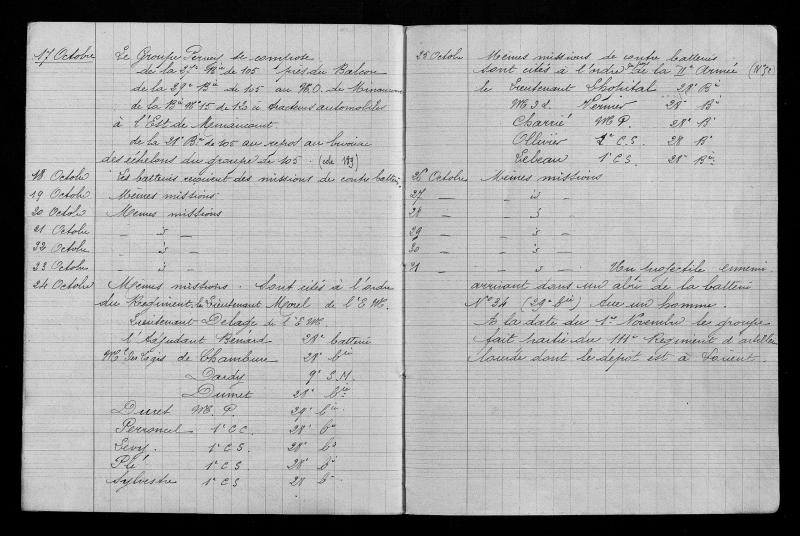 17 Octobre Le Groupe Perney se compose
de la 27e Bie de 105 près du Balcon
de la 29e Bie de 105 au N.O. de Minaucourt
de la Bie No 15 de 120 à tracteurs automobiles
à l'Est de Minaucourt
de la 28e Bie de 105 au repos au bivouac
des échelons du groupe de 105. (cote 189)
18 Octobre Les batteries reçoivent des missions de contre batterie
19 Octobre Mêmes missions
20 Octobre Mêmes missions
21 Octobre — id —
22 Octobre — id —
23 Octobre — id —
24 Octobre Mêmes missions. Sont cités à l'ordre
du Régiment, le Lieutenant Morel de l'E.M.
Lieutenant Delage de l'E M
l'Adjudant Benard 28e batterie
Mal des Logis de Chambure 28e bie
Dardy 9e S.M.
Dumet 28e bie
Duret M. P. 29e bie
Perronel 1e C.C. 28e bie
Levy 1e C S 28e bie
Plé 1e C S 28e bie
Sylvestre 1e C S 28 bie
25 Octobre Mêmes missions de contre batterie
Sont cités à l'ordre de la IIe Armée
le Lieutenant Lhopital 28e Bie
M d L Vernier 28e Bie
Charrié M. P. 28e Bie
Ollivier 1e C. S. 28 Bie
Lebeau 1e C. S. 28e Bie
26 Octobre Mêmes missions
27 — — id —
28 — — id —
29 — — id —
30 — — id —
31 — — id — Un projectile ennemi
arrivant dans un abri de la batterie
No 34 (29e bie) tue un homme.
A la date du 1er Novembre le groupe
fait partie du 111e Régiment d'artillerie
lourde dont le dépôt est à Lorient.